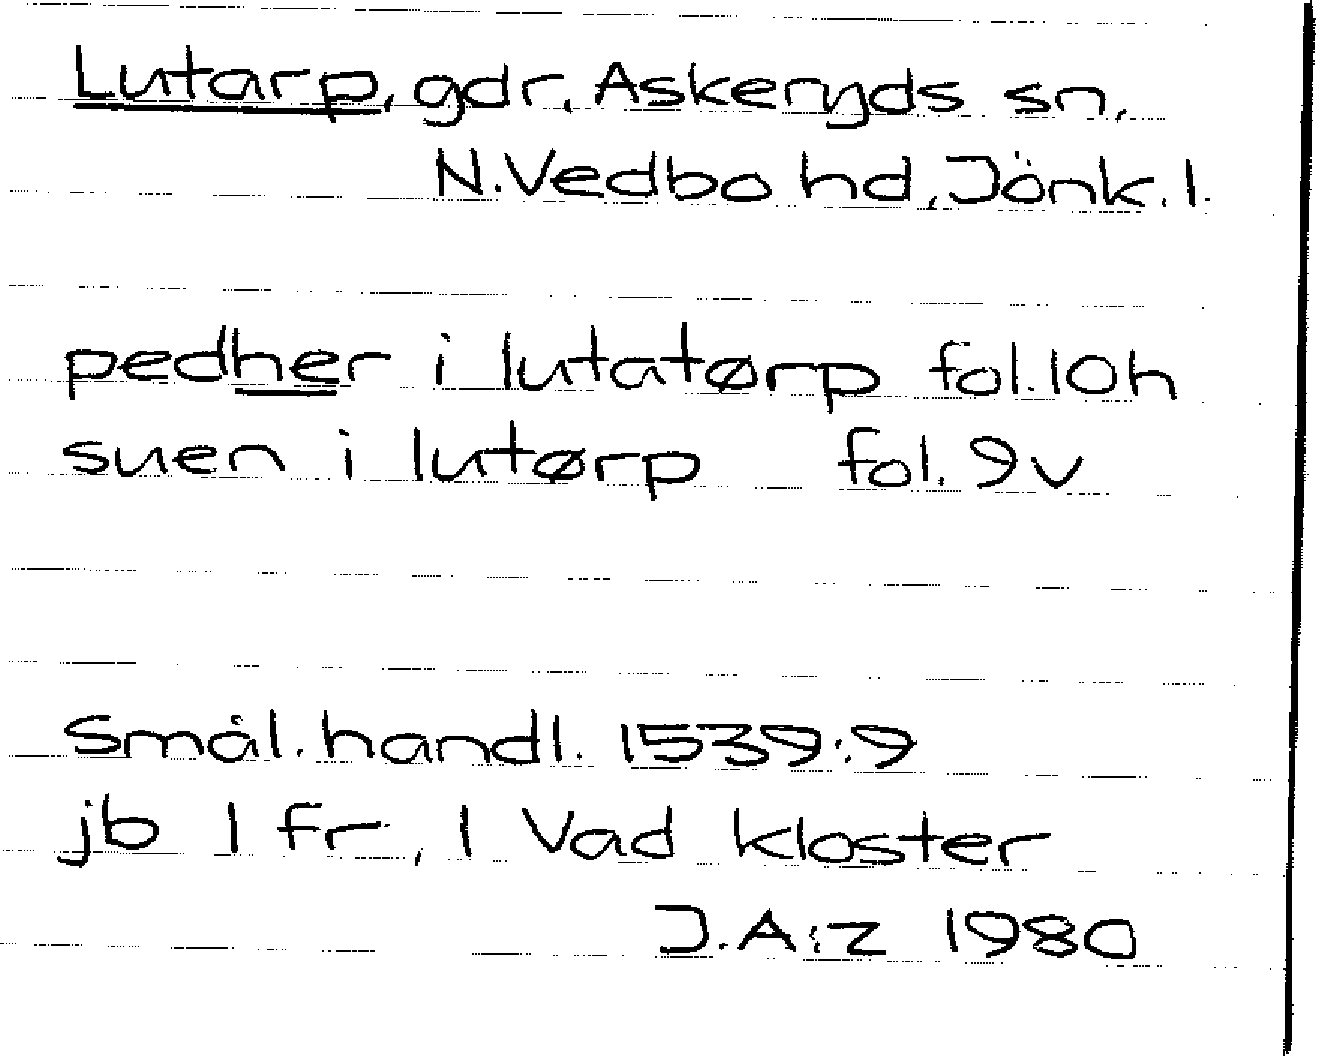 Lutarp, gdr, Askeryds sn,
N.Vedbo hd, Jönk.l.
pedher i lutatørp fol.10h
suen i lutørp fol. 9v
Smål. handl. 1539:9
jb 1 fr, 1 Vad kloster
J.A:z 1980